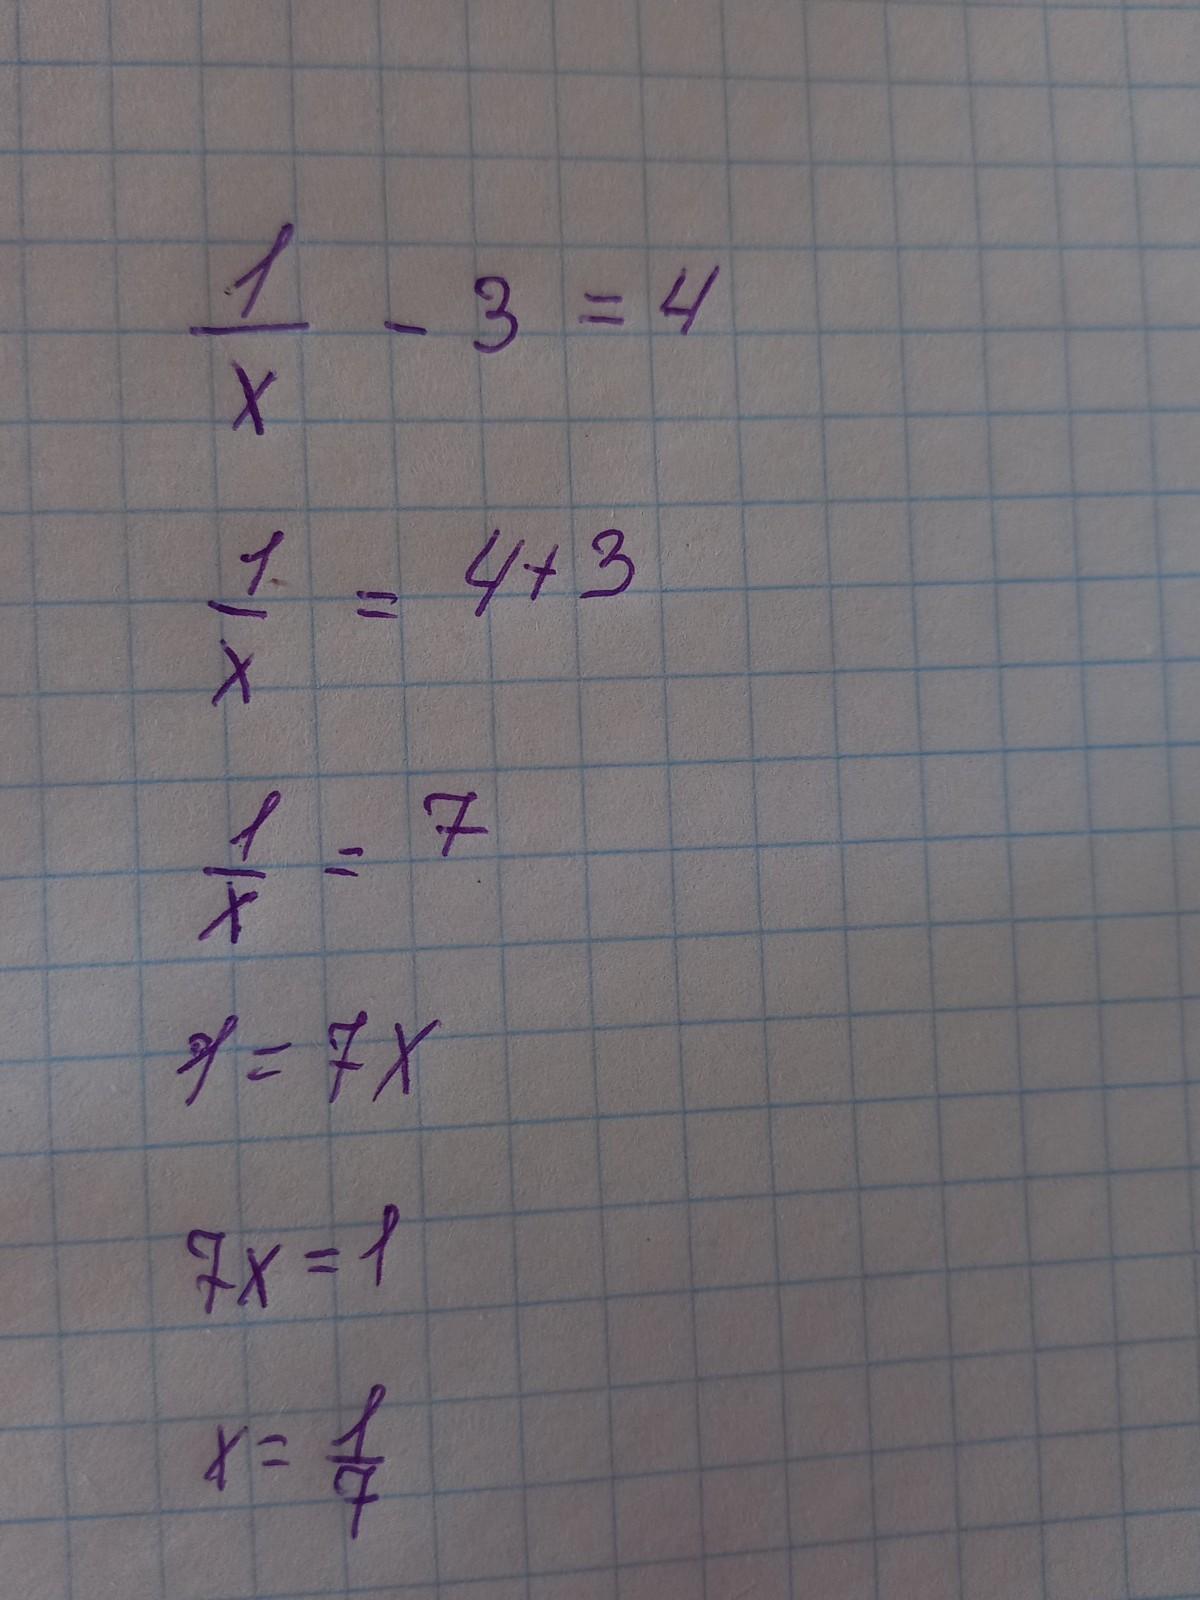 1/x - 3 = 4
1/x = 4+3
1/x = 7
1 = 7x
7x = 1
x = 1/7